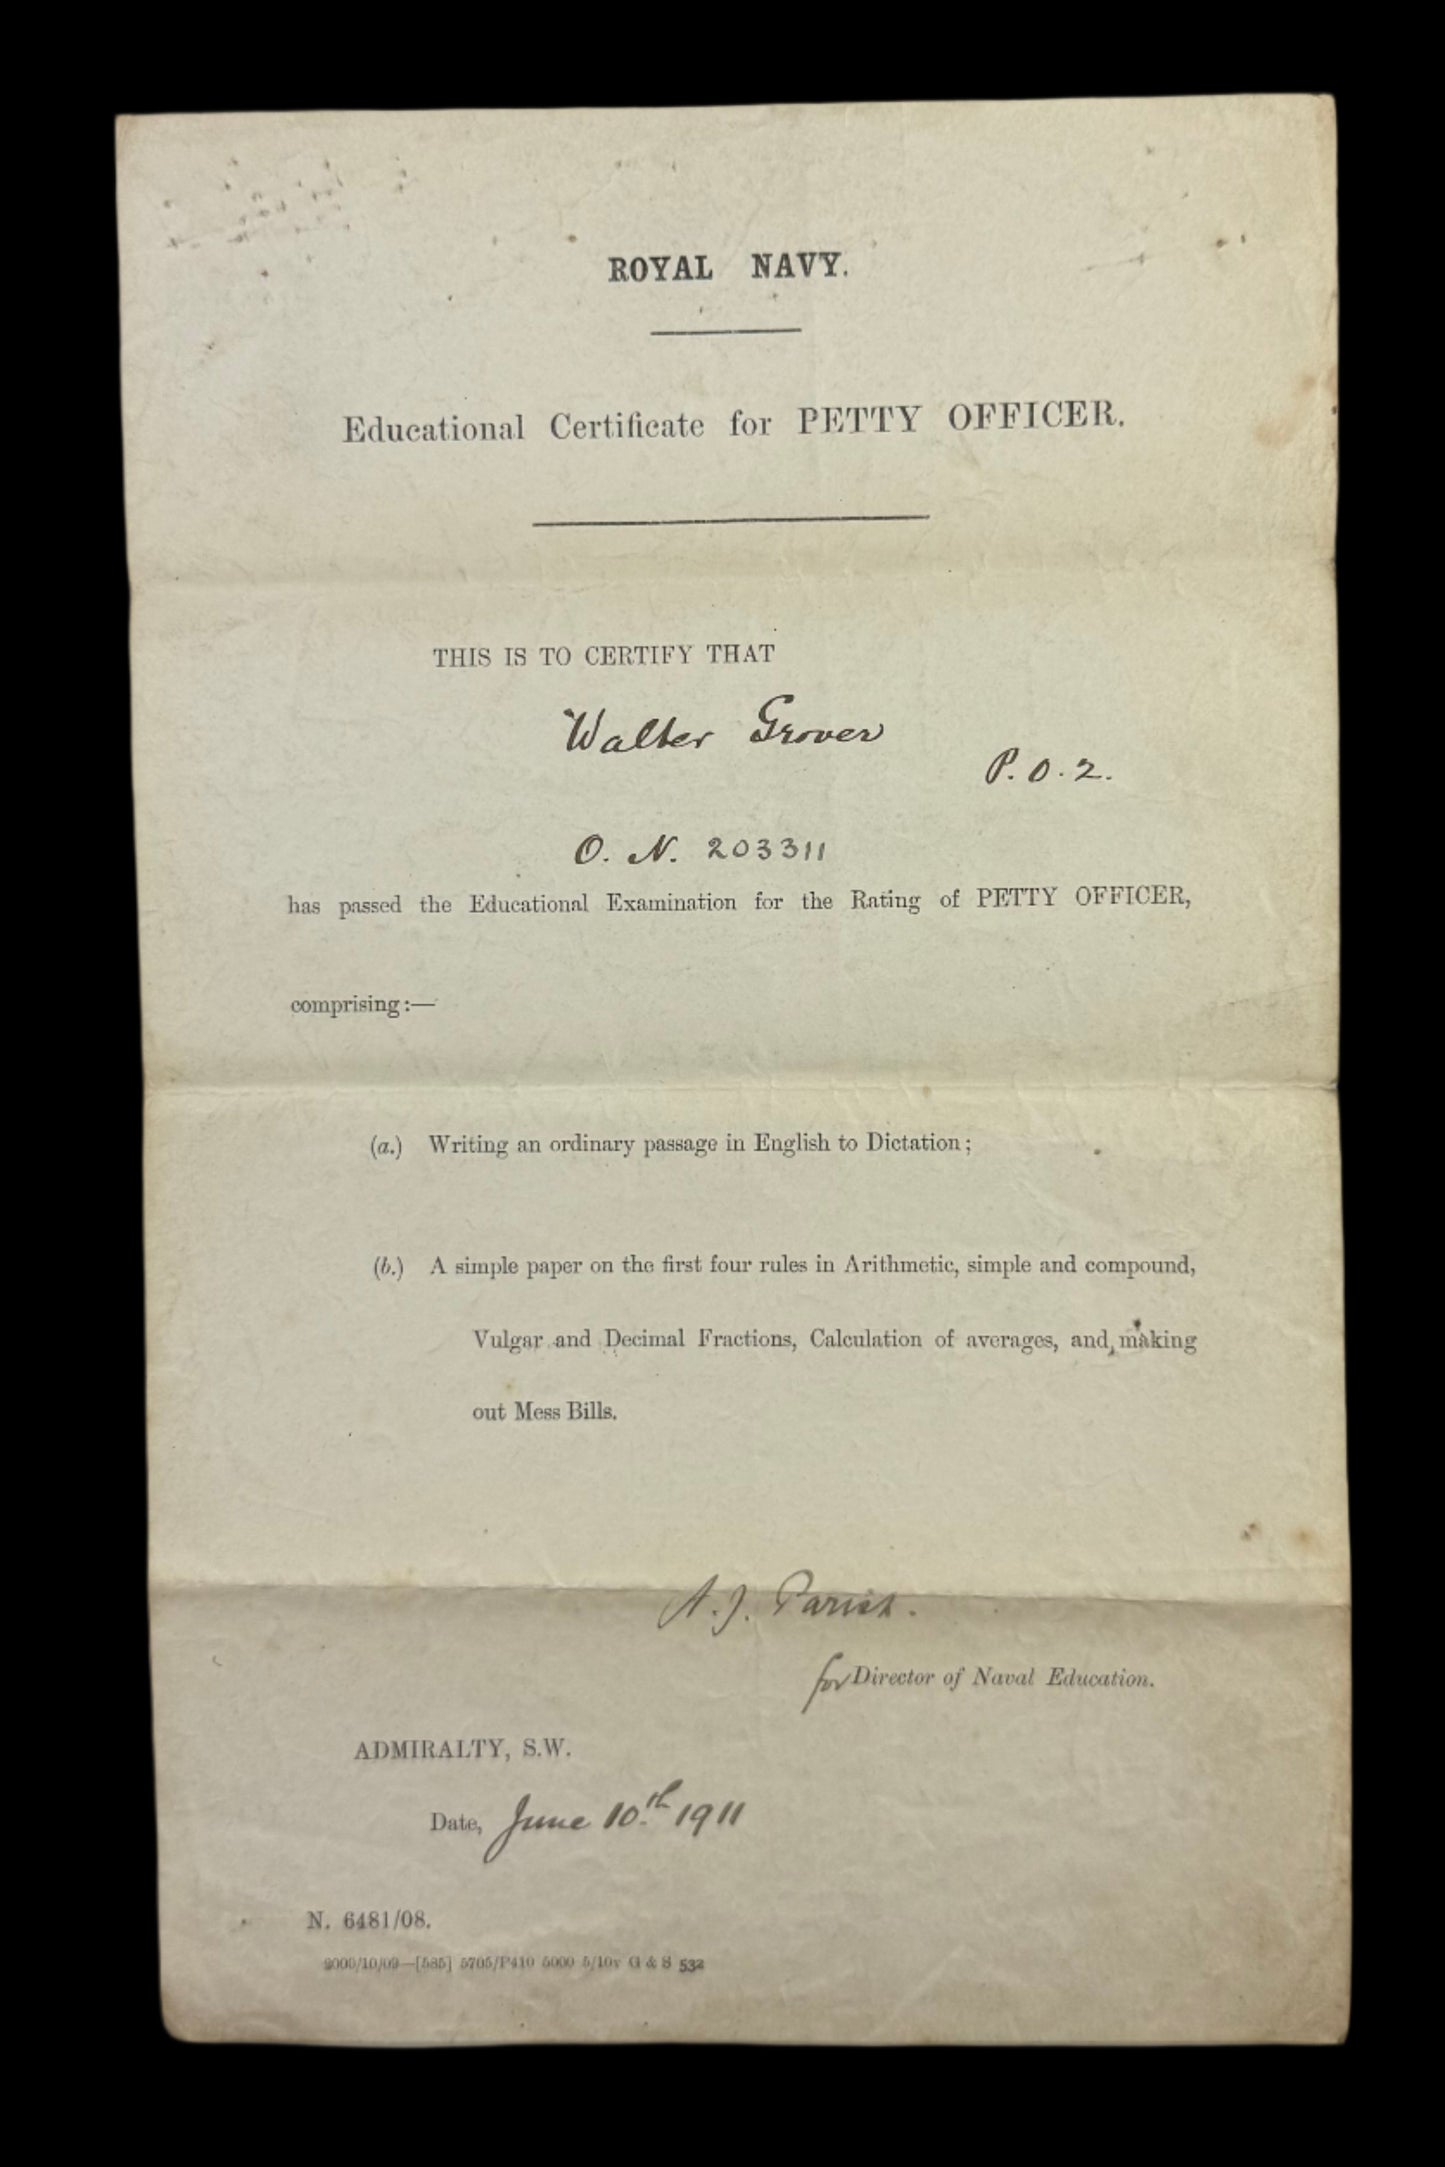 ROYAL NAVY.
Educational Certificate for PETTY OFFICER.
THIS IS TO CERTIFY THAT
Walter Grover
P.O.2.
O. N. 203311
has passed the Educational Examination for the Rating of PETTY OFFICER,
comprising:—
(a.) Writing an ordinary passage in English to Dictation;
(b.) A simple paper on the first four rules in Arithmetic, simple and compound,
Vulgar and Decimal Fractions, Calculation of averages, and making
out Mess Bills.
A. J. Parish.
for Director of Naval Education.
ADMIRALTY, S.W.
Date, June 10th 1911
N. 6481/08.
2000/10/09—[585] 5705/P410 5000 5/10v G & S 532